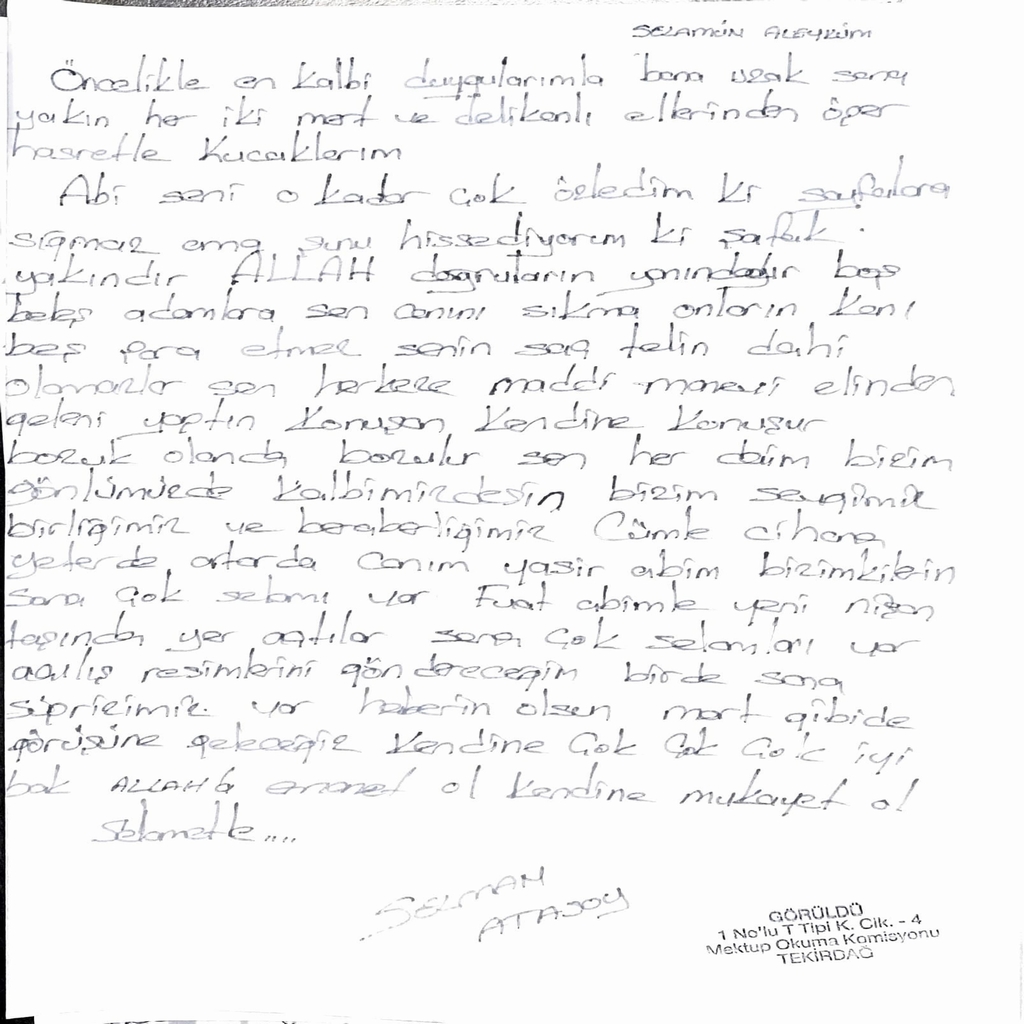 SELAMÜN ALEYKÜM
Öncelikle en kalbi duygularımla bana uzak sana
yakın her iki mert ve delikanlı ellerinden öper
hasretle kucaklarım
Abi seni o kadar çok özledim ki sayfalara
sığmaz ama şunu hissediyorum ki şafak
yakındır ALLAH doğruların yanındadır boş
beleş adamlara sen canını sıkma onların kanı
beş para etmez senin saç telin dahi
olamazlar sen herkeze maddi manevi elinden
geleni yaptın konuşan kendine konuşur
bozuk olanda bozulur sen her daim bizim
gönlümüzde kalbimizdesin bizim sevgimiz
birliğimiz ve beraberliğimiz cümle cihana
yeterde artarda canım yasir abim bizimkilerin
sana çok selamı var Fuat abimle yeni nişan
taşında yer açtılar sana çok selamları var
açılış resimlerini göndereceğim birde sana
süprizimiz var haberin olsun mart gibide
görüşüne geleceğiz kendine çok çok çok iyi
bak ALLAH'a emanet ol kendine mukayet ol
Selametle....
SELMAN
ATASOY
GÖRÜLDÜ
1 No'lu T Tipi K. Cik. - 4
Mektup Okuma Komisyonu
TEKİRDAĞ